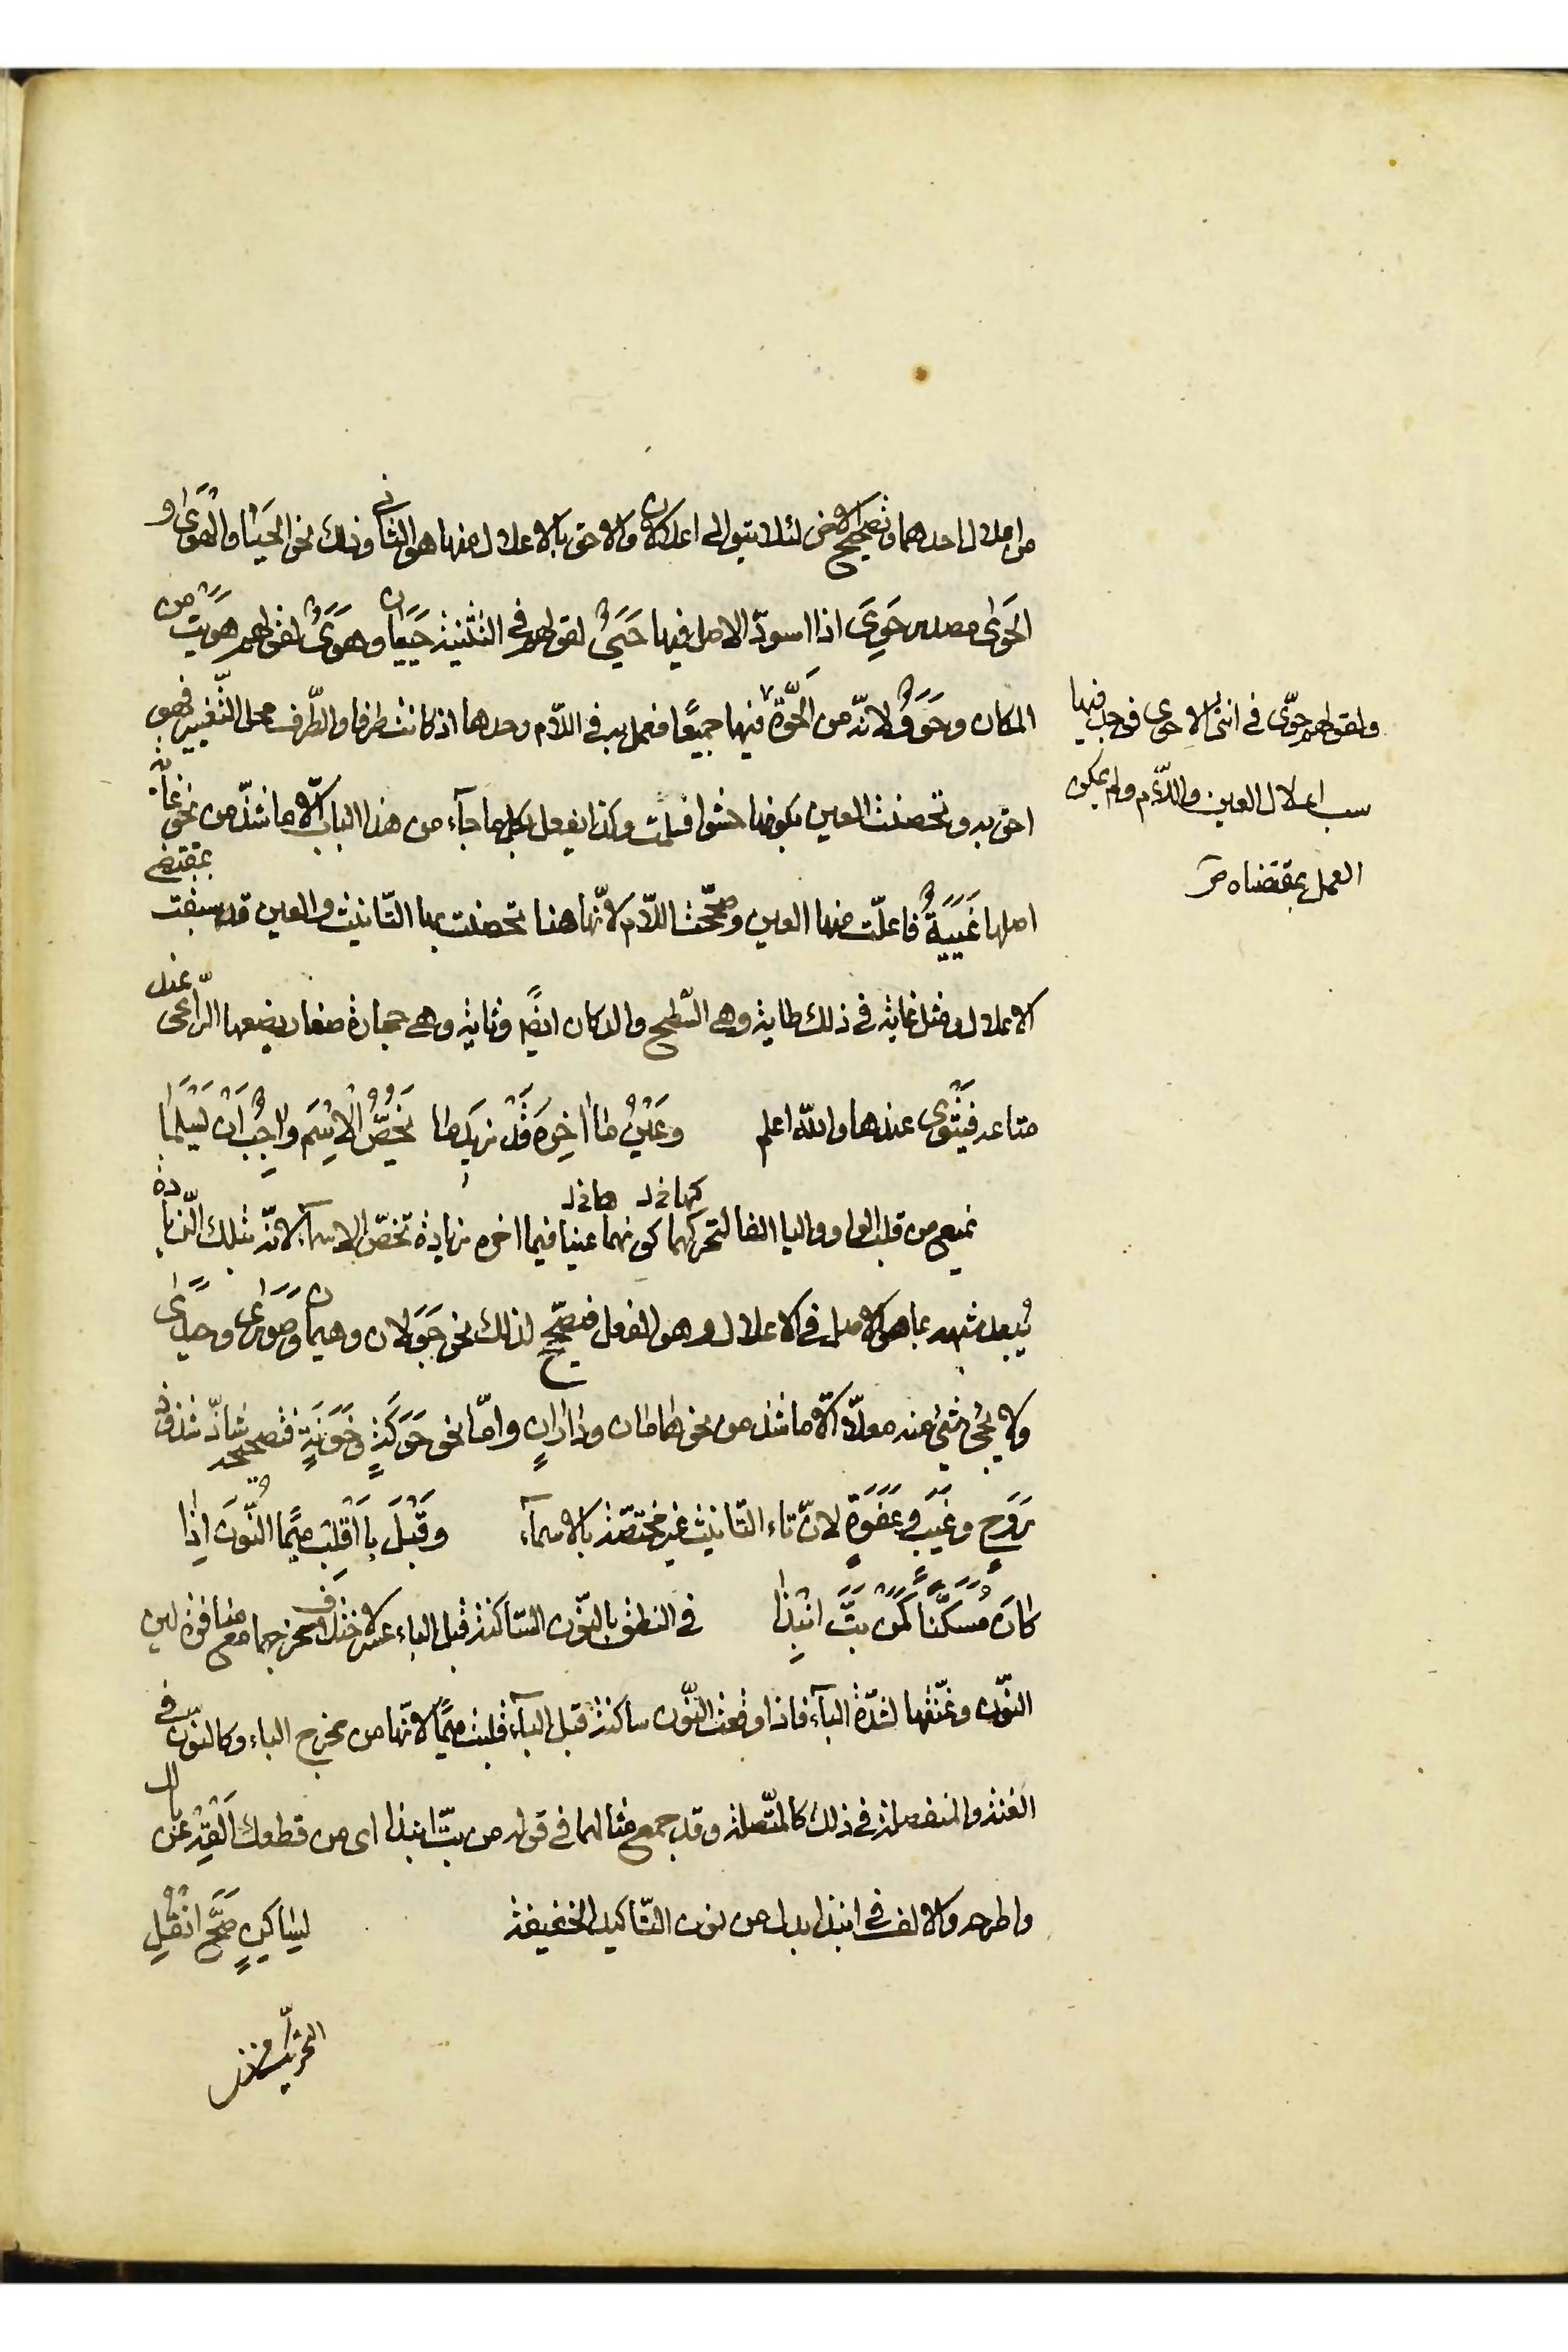 من اعلال احدهما وتصحيح الاخر لئلا يتوالى اعلالان والاحق بالاعلال منهما هو الثاني وذلك نحو الحَيَا والهَوَى و
الحَوَى مصدر حَوِيَ اذا اسودّ الاصل فيها حَيَيٌ لقولهم في التثنية حَيَيان وهَوَيٌ لقولهم هويت من
المكان وحَوَوٌ لانّه من الحُوّة فيهما جميعًا فعمل به في اللّام وحدها اذ كانت طرفا والطّرف محل التّغيير فهو
احق به وتحصنت العين بكونها حشوا فسلمت وكذا يفعل بكل ما جاء من هذا الباب الّا ما شذّ من نحو غاية
اصلها غَيَيَةٌ فاعلّت منها العين وصحّحت اللّام لانّها هنا تحصنت بها التّانيث والعين قد سبقت بمقتضى
الاعلال ومثل غاية في ذلك طاية وهي السّطح والدكان ايضًا وثاية وهي حجارة صغار يضعها الرّاعي عند
متاعه فيَثْوِي عندها والله اعلم وعَيْنُ ما آخِرَه قَدْ زِيدَ ما يَخُصُّ الاِسْمَ واجِبٌ اَنْ يَسْلَما
يمنع من قلب الواو واليا الفا لتحركهما كونهما عينا فيما اخره زيادة تخصّ الاسماء لانّه بتلك الزّيادة
كها خد هما خد
يُبعد شبهه بما هو الاصل في الاعلال وهو الفعل فيصحّح لذلك نحو جَوَلان وهَيَمان وصَوَرَى وحَيَدَى
ولا يجئ شئ منه معلّا الّا ما شذ من نحو ماهان وداران وامّا نحو حَوَكَةٍ وخَوَنَةٍ فتصحيحه شاذّ شذوذ
رَوَحٍ وغَيَبٍ وعَفَوَةٍ لانّ تاء التّانيث غير مختصّة بالاسماء وقَبْلَ بَا اقْلِبْ مِيمًا النُّونَ اِذَا
كانَ مُسَكَّنًا كَمَنْ بَتَّ انْبِذَا في النطق بالنّون السّاكنة قبل الباء عسر لاختلاف مخرجهما مع منافرة لين
النّون وغنّتها لشدّة الباء فاذا وقعت النّون ساكنة قبل الباء قلبت ميمًا لانّها من مخرج الباء وكالنّون في
الغنة والمنفصلة في ذلك كالمتّصلة وقد جمع مثالهما في قوله من بتّ انبذا اى من قطعك اَلْقِه عن بالك
واطرحه والالف في انبذا بدل من نون التّاكيد الخفيفة لِسَاكِنٍ صَحَّ انْقُلِ
التحريك
ولقولهم حوّى في انثى الاحوى فوجد فيها
سبب اعلال العين واللّام ولم يمكن
العمل بمقتضاه